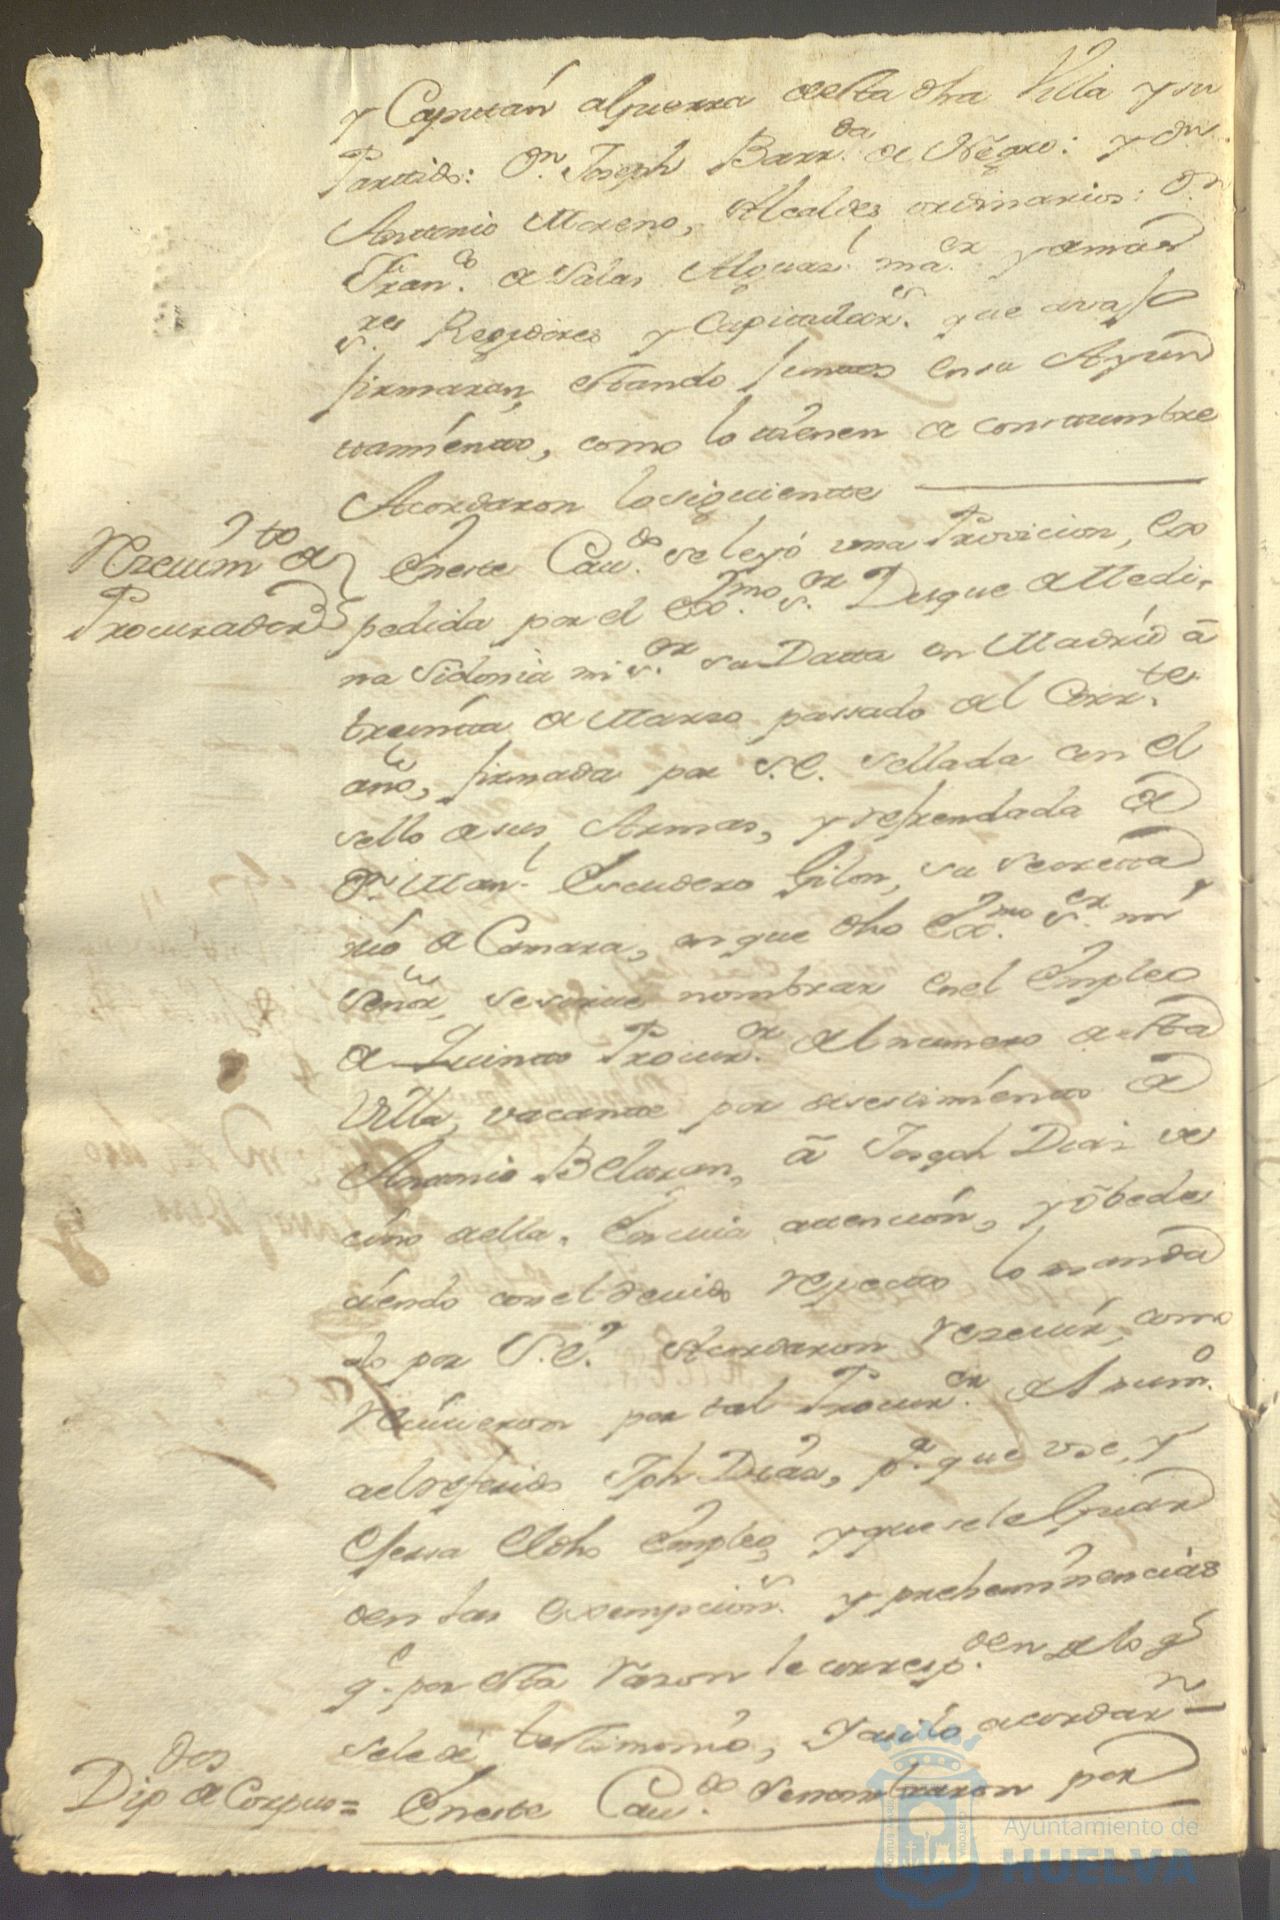 y Capitán a Guerra de esta dha Villa y su
Partido: Dn. Joseph Barr.da de Negro: y Dn.
Antonio Moreno, Alcaldes ordinarios: Dn.
Fran.co de Salas Alguasl. ma.or y demas
s.res Regidores y Capitulars. que avajo
firmaran, estando juntos en su Ayun
tamiento, como lo tienen de constumbre
Acordaron lo siguiente
Reciuim.to de
Procurador
En este Cau.do se leyó una Provicion, Ex
pedida por el Ex.mo s.or Duque de Medi-
na Sidonia mi s.or su Datta en Madrid á
treinta de Marzo passado del Corr.te
año, firmada por S.E. sellada con el
sello de sus Armas, y refrendada de
Dn. Manl. Escudero Gilon, su Secreta
rio de Camara, en que dho Ex.mo s.or mi
señor, se sirue nombrar en el Empleo
de Quinto Procur.or del numero de esta
Villa, vacante por desestimiento de
Antonio Beltran, á Joseph Dias ve
cino de ella. En cuia atención, y obede
ciendo con el deuido respecto lo manda
do por S.E. Acordaron Receuir, como
Reciuieron por tal Procur.or del num.o
al referido Jph Dias, p.a que use, y
ejersa el dho Empleo, y que se le Guar
den las exempcions. y prehemimencias
q.e por esta razon le corresp.den de lo q.e
se le dé testimonio, y asi lo acordarn
Dip.dos de Corpus=
En este Cau.do se nombraron por
Ayuntamiento de
HUELVA